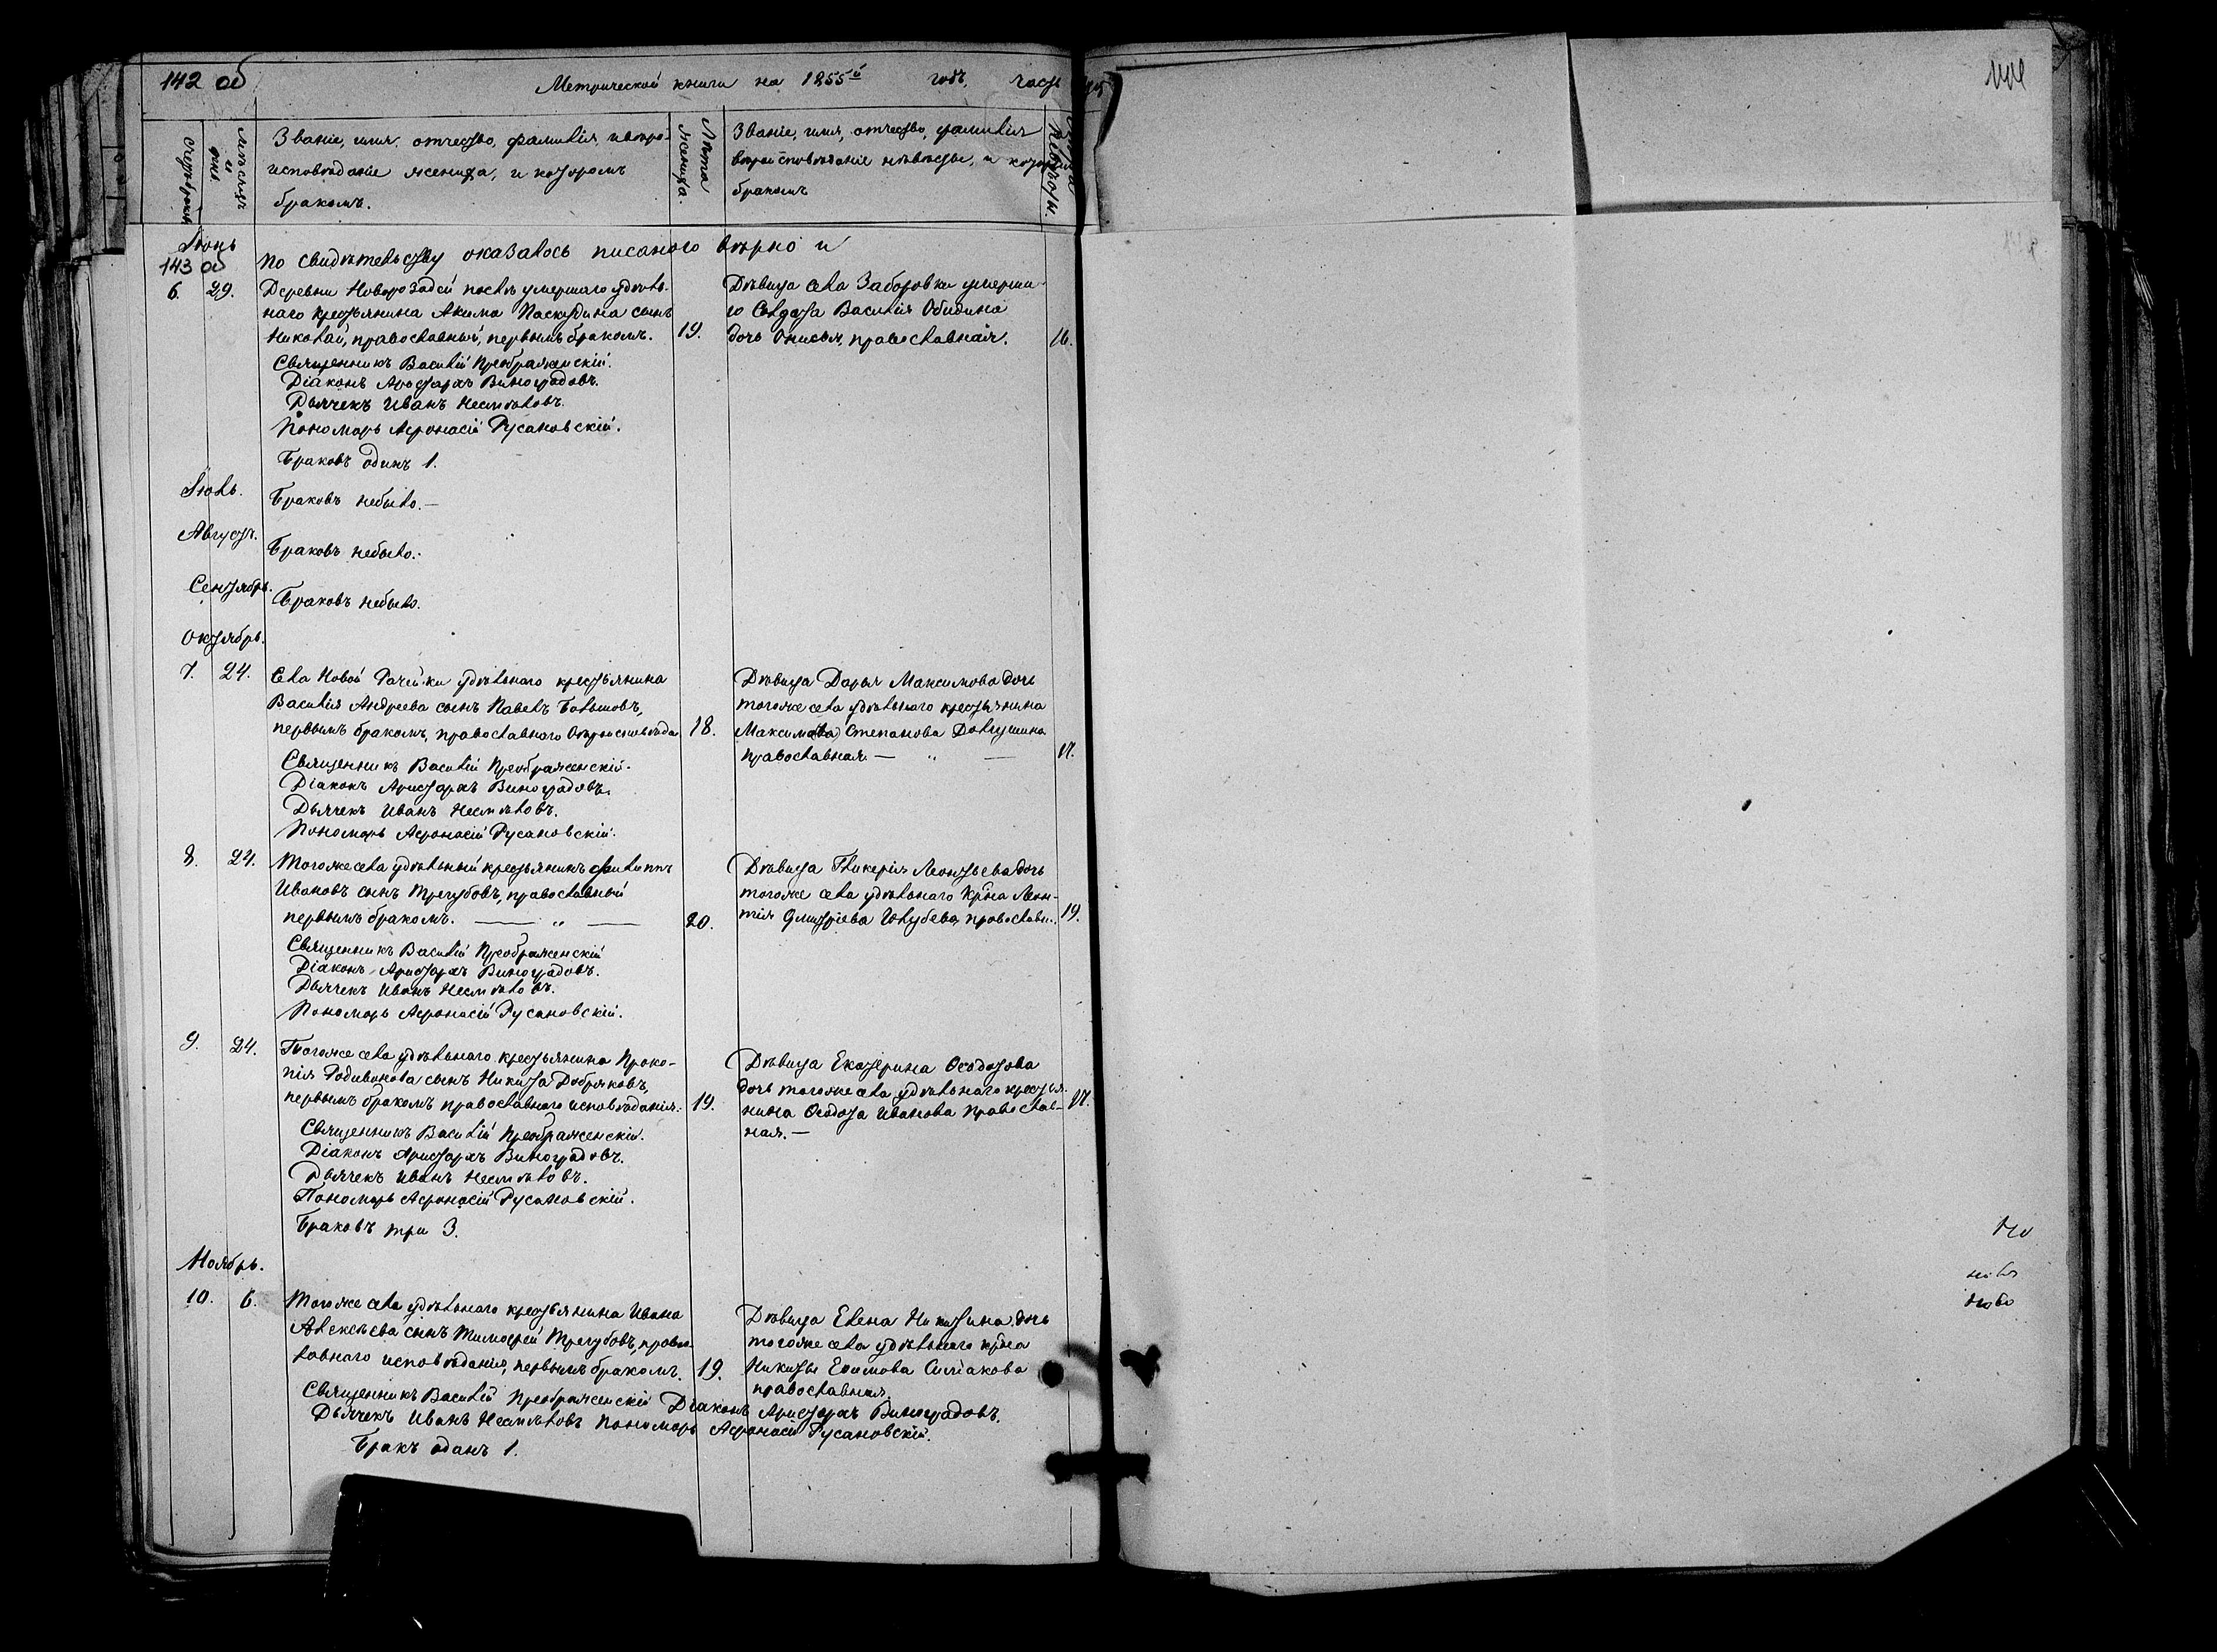 142 об
Метрической книги на 1855й годъ, часть
счетъ браковъ
мѣсяцъ и дни
Званіе, имя, отчество, фамилія, и вѣро-
исповѣданіе жениха, и которомъ
бракомъ.
Лѣта жениха.
Званіе, имя, отчество, фамилія
вѣроисповѣданіе невѣсты, и которымъ
бракомъ
Лѣта невѣсты.
Іюнь
143 об
По свидѣтельству оказалось писаного вѣрно и
6. 29. Деревни Новорозадей послѣ умершаго удѣль-
наго крестьянина Акима Паскудина сынъ
Николай, православный, первымъ бракомъ. 19.
Дѣвица села Заборовки умерша-
го Солдата Василія Обидина
дочь Онисья, православная. 16.
Священникъ Василій Преображенскій.
Діаконъ Аристархъ Виноградовъ.
Дьячекъ Иванъ Несмѣловъ.
Пономарь Афонасій Русановскій.
Браковъ одинъ 1.
Іюль.
Браковъ небыло.—
Августъ.
Браковъ небыло.
Сентябрь.
Браковъ небыло.
Октябрь.
7. 24. Села Новой Рачейки удѣльнаго крестьянина
Василія Андреева сынъ Павелъ Болышовъ,
первымъ бракомъ, православнаго вѣроисповѣда 18.
Дѣвица Дарья Максимова дочь
тогоже села удѣльнаго крестьянина
Максима Степанова Долгушина
православная — „ — 17.
Священникъ Василій Преображенскій.
Діаконъ Аристархъ Виноградовъ.
Дьячекъ Иванъ Несмѣловъ.
Пономарь Афонасій Русановскій.
8. 24. Тогоже села удѣльный крестьянинъ Филиппъ
Ивановъ сынъ Трегубовъ, православный
первымъ бракомъ. — „ — 20.
Дѣвица Гликерія Леонтьева дочь
тогоже села удѣльнаго кр-на Леон-
тія Дмитріева Голубева, православн. 19.
Священникъ Василій Преображенскій
Діаконъ Аристархъ Виноградовъ.
Дьячекъ Иванъ Несмѣловъ.
Пономарь Афонасій Русановскій.
9. 24. Тогоже села удѣльнаго крестьянина Проко-
пія Родивонова сынъ Никита Добряковъ,
первымъ бракомъ православнаго исповѣданія. 19.
Дѣвица Екатерина Ѳеодотова
дочь тогоже села удѣльнаго крестья-
нина Ѳеодота Иванова православ-
ная.— 17.
Священникъ Василій Преображенскій.
Діаконъ Аристархъ Виноградовъ.
Дьячекъ Иванъ Несмѣловъ.
Пономарь Афонасій Русановскій.
Браковъ три 3.
Ноябрь.
10. 6. Тогоже села удѣльнаго крестьянина Ивана
Алексѣева сынъ Тимофей Трегубовъ, право-
лавнаго исповѣданія, первымъ бракомъ. 19.
Дѣвица Елена Никитина, дочь
тогоже села удѣльнаго кр-на
Никиты Ефимова Симакова
православная.
Священникъ Василій Преображенскій Діаконъ Аристархъ Виноградовъ.
Дьячекъ Иванъ Несмѣловъ Пономарь Афонасій Русановскій.
Бракъ оданъ 1.